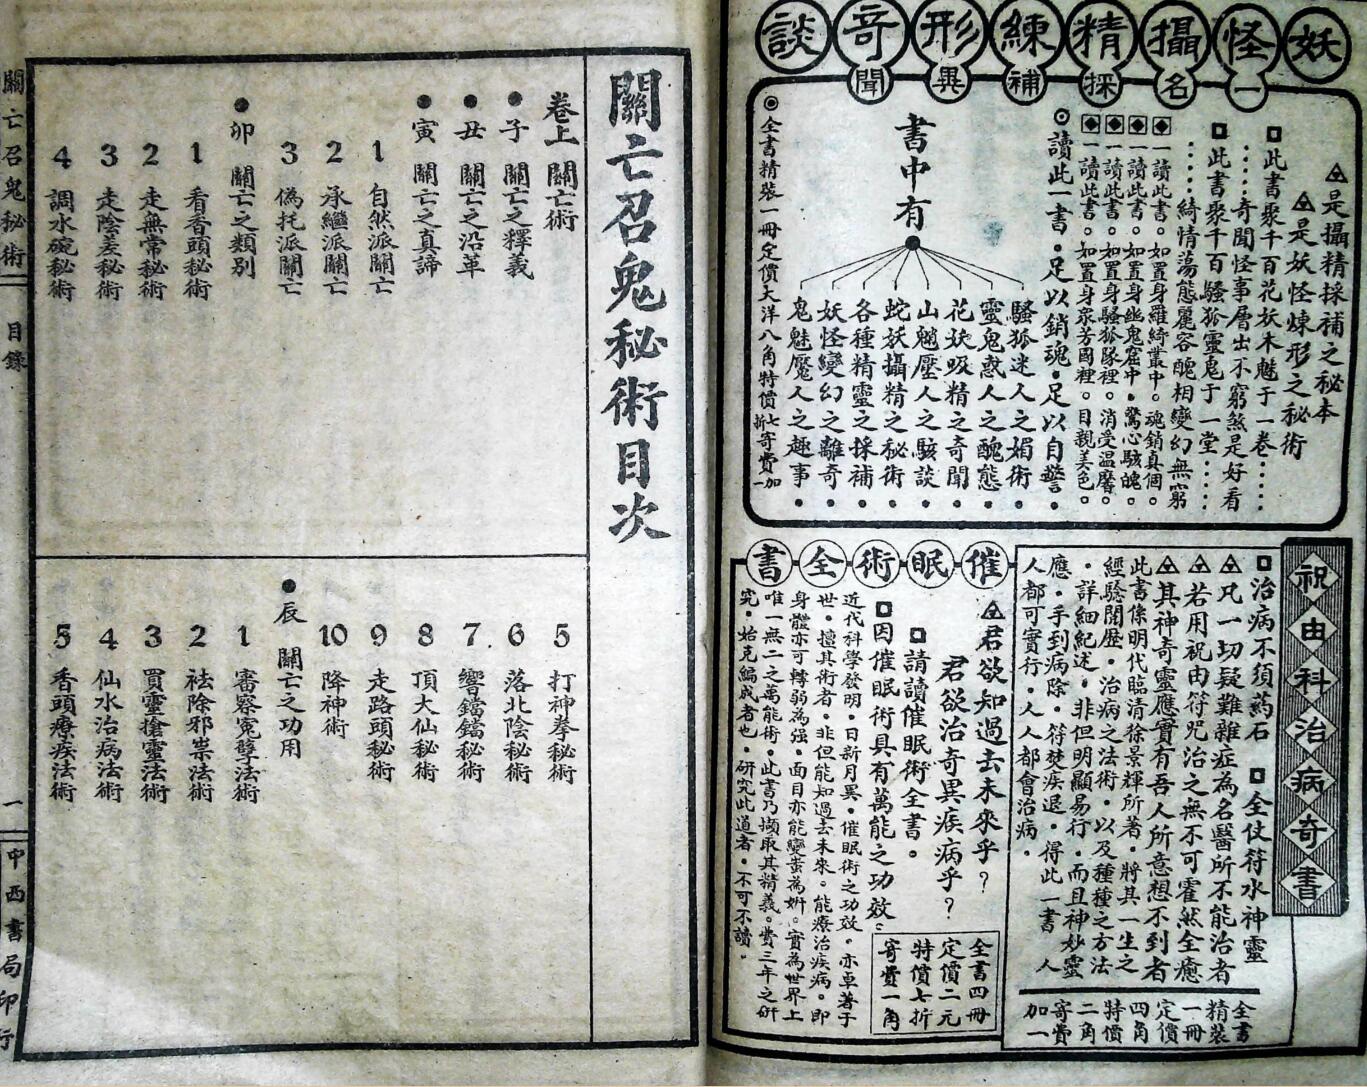 妖怪攝精練形奇談
一名採補異聞
是攝精採補之秘本
是妖怪煉形之秘術
此書聚千百花妖木魅于一卷⋯⋯
⋯⋯奇聞怪事層出不窮煞是好看
此書聚千百騷狐靈鬼于一堂⋯⋯
⋯⋯綺情蕩態麗容醜相變幻無窮
一讀此書。如置身羅綺叢中。魂銷真個。
一讀此書。如置身幽鬼窟中。驚心駭魄。
一讀此書。如置身騷狐隊裡。消受温馨。
一讀此書。如置身衆芳國裡。目親美色。
◎讀此一書・足以銷魂・足以自警・
書中有
騷狐迷人之媚術・
靈鬼惑人之醜態・
花妖吸精之奇聞・
山魈壓人之駭談・
蛇妖攝精之秘術・
各種精靈之採補・
妖怪變幻之離奇・
鬼魅魘人之趣事・
◎全書精裝一冊定價大洋八角特價七折寄費加一
祝由科治病奇書
治病不須葯石
全仗符水神靈
凡一切疑難雜症為名醫所不能治者
若用祝由符咒治之無不可霍然全癒
其神奇靈應實有吾人所意想不到者
此書係明代臨清徐景輝所著・將其一生之
經驗閱歷・治病之法術・以及種種之方法
・詳細紀述・非但明顯易行・而且神妙靈
應・手到病除・符焚疾退・得此一書 人
人都可實行・人人都會治病・
全書
精裝
一冊
定價
四角
特價
二角
寄費
加一
催眠術全書
君欲知過去未來乎?
君欲治奇異疾病乎?
請讀催眠術全書。
因催眠術具有萬能之功效。
近代科學發明・日新月異・催眠術之功效・亦卓著于
世・擅其術者・非但能知過去未來。能療治疾病。即
身體亦可轉弱為强・面目亦能變蚩為妍。實為世界上
唯一無二之萬能術・此書乃擷取其精義。費三年之研
究・始克編成者也・研究此道者・不可不讀。
全書四冊
定價二元
特價七折
寄費一角
關亡召鬼秘術目次
卷上 關亡術
●子 關亡之釋義
●丑 關亡之沿革
●寅 關亡之真諦
1 自然派關亡
2 承繼派關亡
3 偽托派關亡
●卯 關亡之類別
1 看香頭秘術
2 走無常秘術
3 走陰差秘術
4 調水碗秘術
5 打神拳秘術
6 落北陰秘術
7 響鐺鐺秘術
8 頂大仙秘術
9 走路頭秘術
10 降神術
●辰 關亡之功用
1 審察冤孽法術
2 祛除邪祟法術
3 買靈搶靈法術
4 仙水治病法術
5 香頭療疾法術
關亡召鬼秘術 目錄 一 中西書局印行